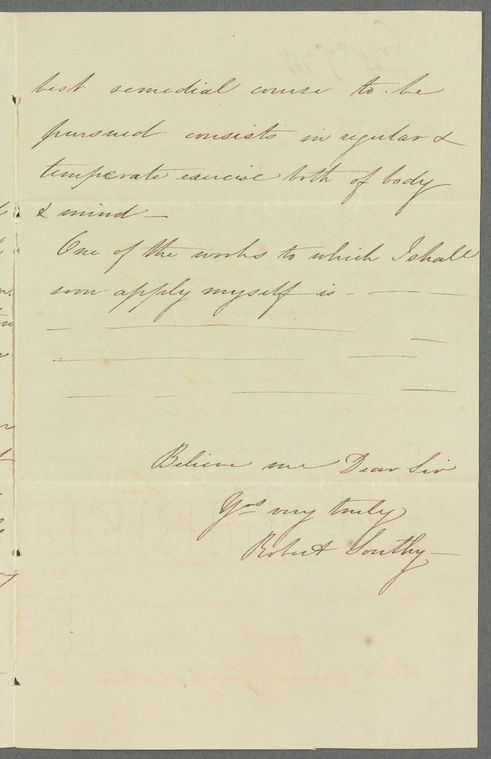 best remedial course to be
pursued consists in regular &
temperate exercise both of body
& mind —
One of the works to which I shall
soon apply myself is —
Believe me Dear Sir
Yrs very truly
Robert Southy —